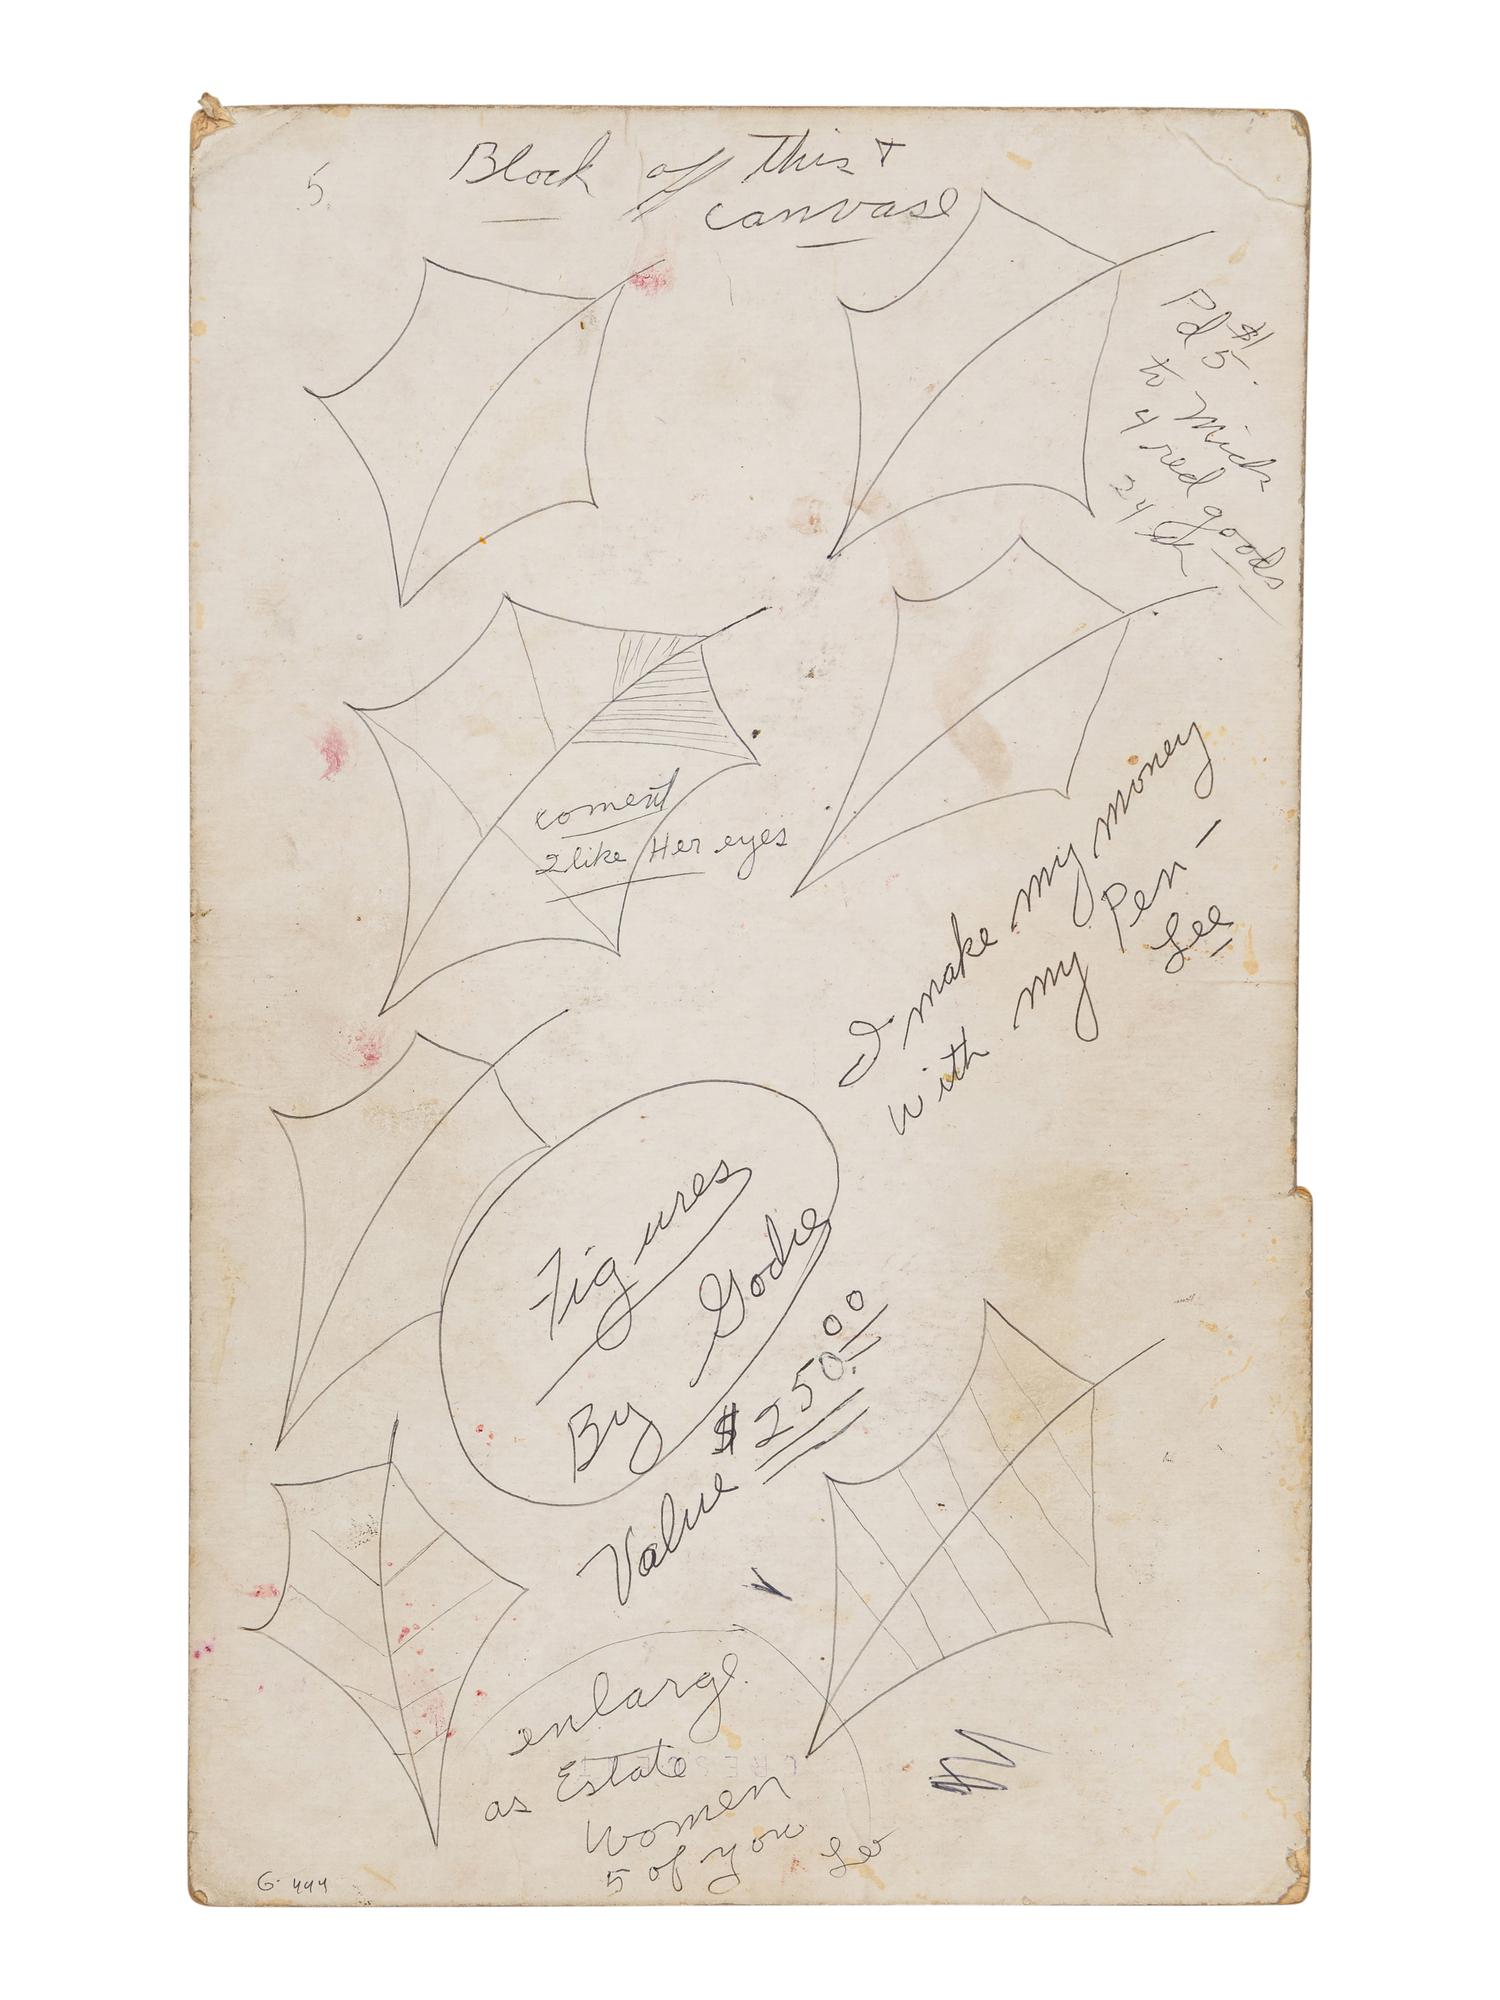 5.
Block off this +
canvase
Pd $1
5.
to Mich
4 red goods
24
coment
2like Her eyes
I make my money
with my Pen –
Lee
Figures
By Godie
Value $250.00
enlarge
as Estate
women
5 of you
Le
G-444